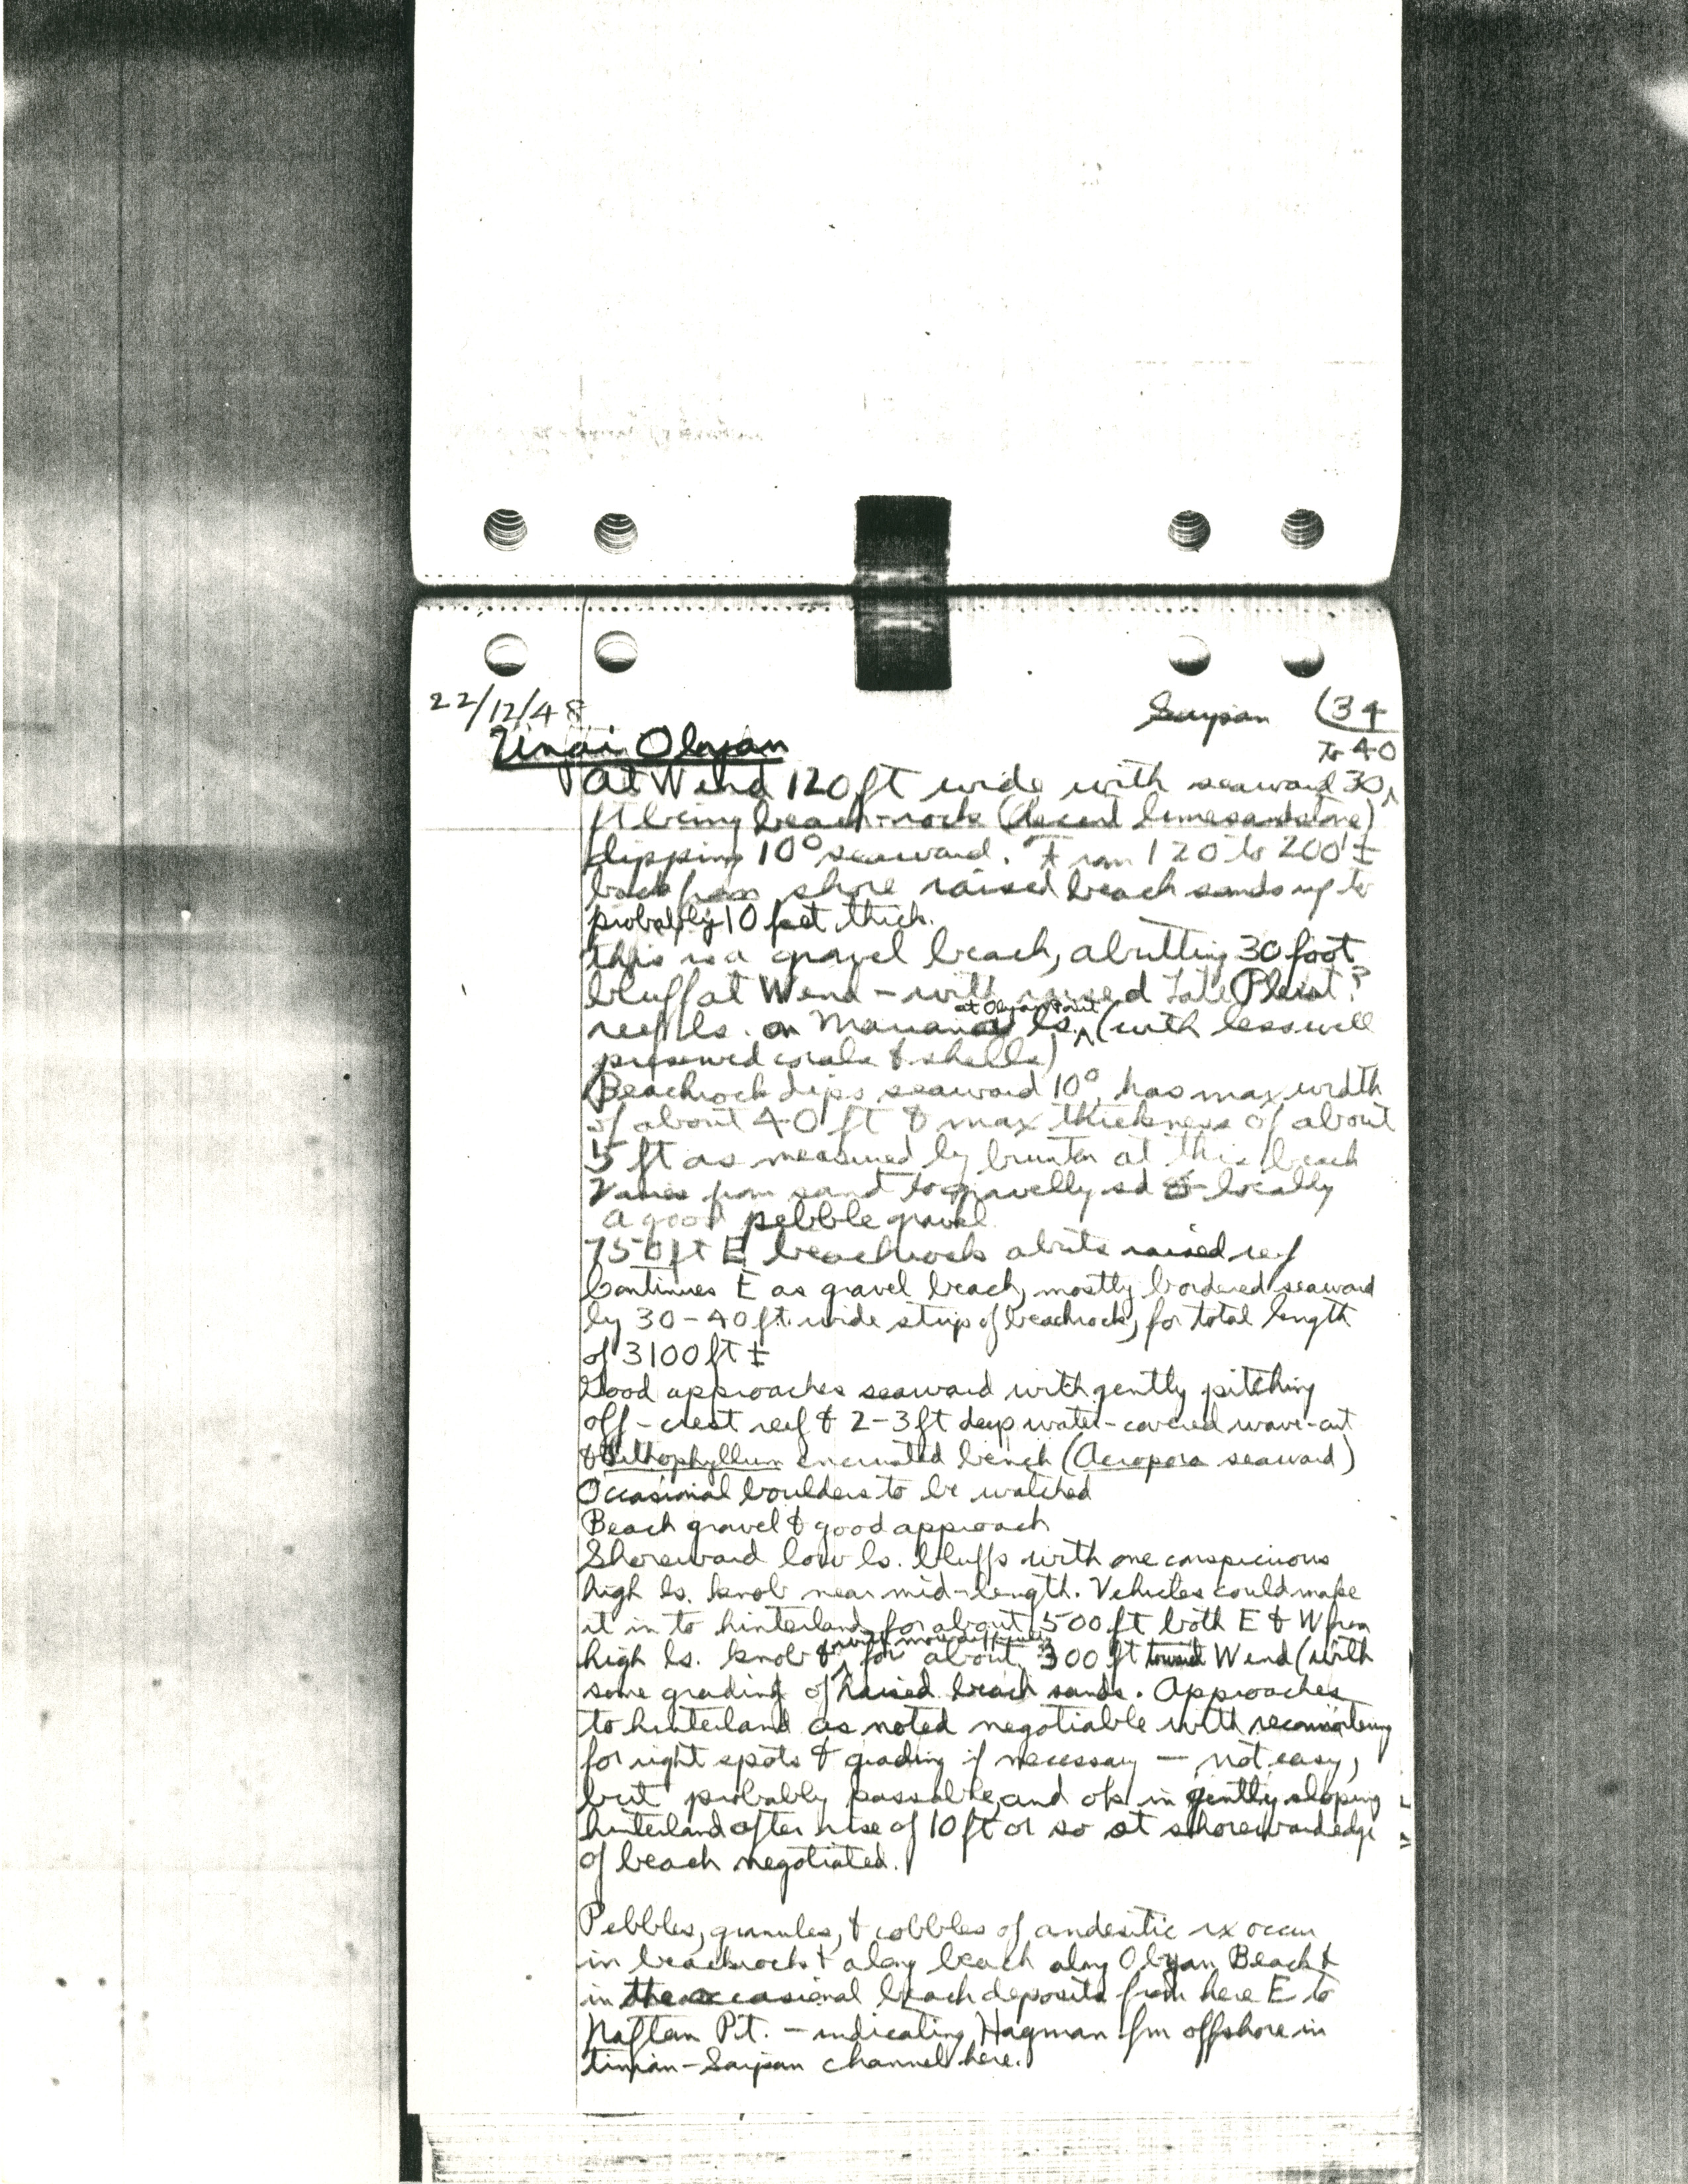 22/12/48 Saipan (34
to 40
Unai Obyan
At W end 120 ft wide with seaward 30
ft being beach-rock (Recent limesandstone)
dipping 10° seaward. From 120 to 200' ±
back from shore raised beach sands up to
probably 10 feet thick.
this is a gravel beach, abutting 30 foot
bluff at W end - with raised Late Pleist.?
at Obyan Point
reef ls. on Mariana ls. ^ (with less well
preserved corals & shells)
Beachrock dips seaward 10°, has max width
of about 40 ft & max thickness of about
5 ft as measured by brunton at this beach
Varies from sand to gravelly sd & locally
a good pebble gravel
750 ft E beachrock abuts raised reef
Continues E as gravel beach, mostly bordered seaward
by 30-40 ft. wide strip of beachrock, for total length
of 3100 ft ±
Good approaches seaward with gently pitching
off-crest reef & 2-3 ft deep water-covered wave-cut
& Lithophyllum encrusted bench (Acropora seaward)
Occasional boulders to be watched
Beach gravel & good approach
Shoreward low ls. bluffs with one conspicuous
high ls. knob near mid-length. Vehicles could make
it in to hinterland for about 1500 ft both E & W from
with more difficulty
high ls. knob & ^ for about 300 ft toward W end (with
some grading of raised beach sands. Approaches
to hinterland as noted negotiable with reconnoitering
for right spots & grading if necessary — not easy,
but probably passable, and ok in gently sloping
hinterland after rise of 10 ft or so at shoreward edge
of beach negotiated.
Pebbles, granules, & cobbles of andesitic rx occur
in beachrock & along beach along Obyan Beach &
in the occasional beach deposits from here E to
Naftan Pt. - indicating Hagman fm offshore in
Tinian-Saipan channel here.